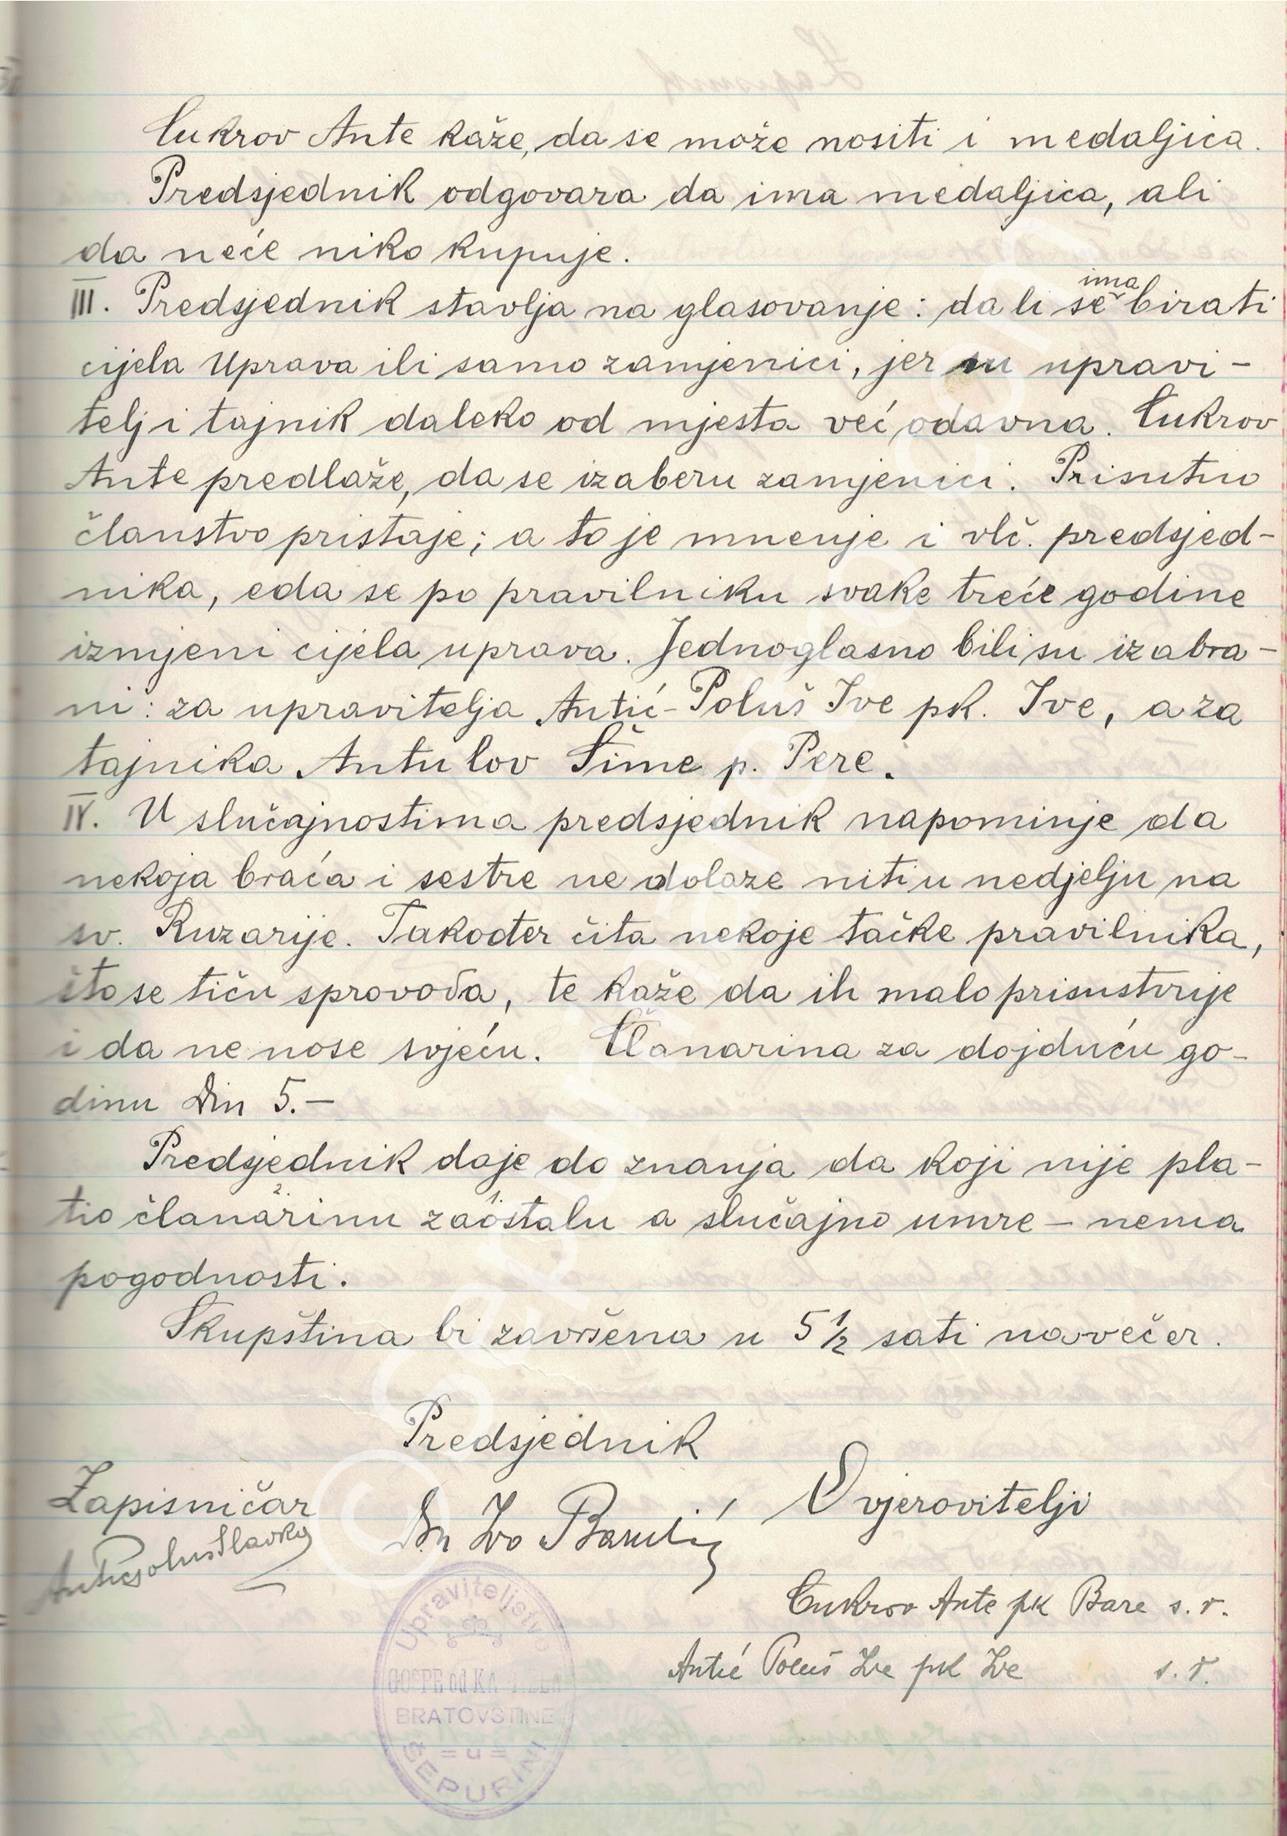 Cukrov Ante kaže, da se može nositi i medaljica.
Predsjednik odgovara da ima medaljica, ali
da neće niko kupuje.
III. Predsjednik stavlja na glasovanje: da li se ima birati
cijela Uprava ili samo zamjenici, jer su upravi-
telj i tajnik daleko od mjesta već odavna. Cukrov
Ante predlaže, da se izaberu zamjenici. Prisutno
članstvo pristaje; a to je mnenje i vlč. predsjed-
nika, eda se po pravilniku svake treće godine
izmjeni cijela uprava. Jednoglasno bili su izabra-
ni: za upravitelja Antić-Poluš Ive pk. Ive, a za
tajnika Antulov Šime p. Pere.
IV. U slučajnostima predsjednik napominje da
nekoja braća i sestre ne dolaze niti u nedjelju na
sv. Ruzarije. Također čita nekoje tačke pravilnika,
što se tiču sprovoda, te kaže da ih malo prisustvije
i da ne nose svjeću. Članarina za dojduću go-
dinu Din 5.—
Predsjednik daje do znanja da koji nije pla-
tio članarinu zaostalu a slučajno umre – nema
pogodnosti.
Skupština bi završena u 5 1/2 sati navečer.
Predsjednik
Zapisničar
Ovjerovitelji
Antić poluš Slavko
Dn Ivo
Cukrov Ante pk Bare s. r.
Antić Poluš Ive pk Ive s. r.
Upraviteljstvo
GOSPE od KA
BRATOVŠTINE
= u =
ŠEPURINI